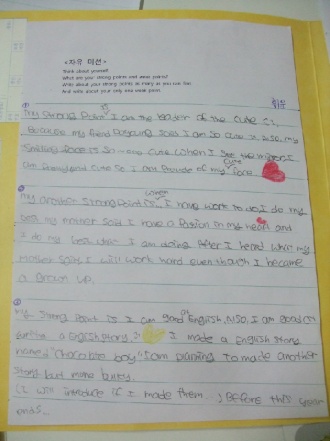 <자유 미션>
Think about yourself
What are your strong points and weak points?
Write about your strong points as many as you can find
And write about your only one weak point.
①
My strong Point is I am the leader of the cute ς.
Because my friend says I am so cute. Also, my
smiling face is so cute. When I see the mirror I
am and cute so I am of my cute face.
②
My another strong Point is.. when I have work to do I do my
best. my mother said I have a Passion in my heart and
I do my best when I am doing. After I heard what my
Mother said, I will work hard even though I became
a Grown up.
③
My strong Point is I am good at English, Also, I am good at
a English story. I made a English story
named "chocolate boy" I am planning to made another
story but more funny.
(I will introduce if I made them. ) Before this
ends..